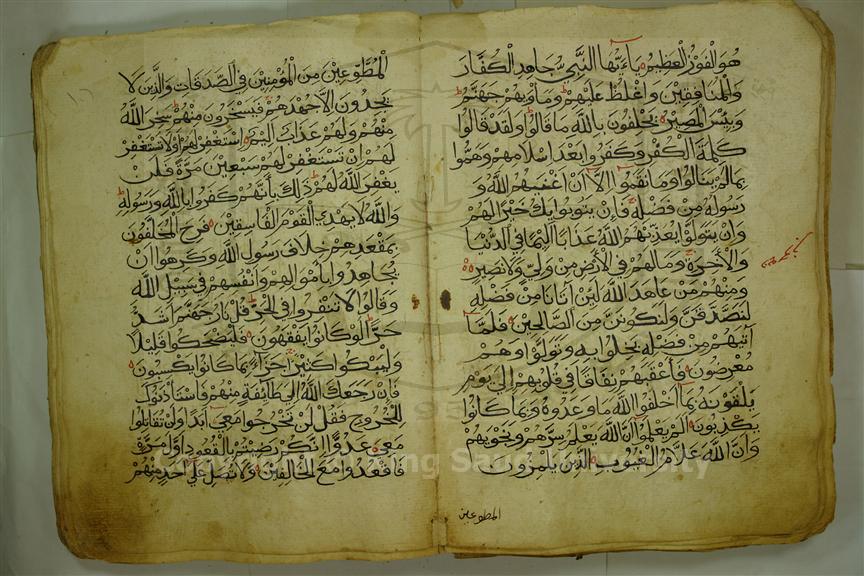 هُوَ الْفَوْزُ الْعَظِيمُ يَاءَيُّهَا النَّبِيُّ جَاهِدِ الْكُفَّارَ
وَالْمُنَافِقِينَ وَاغْلُظْ عَلَيْهِمْ وَمَأْوَيهُمْ جَهَنَّمُ
وَبِئْسَ الْمَصِيرُ يَحْلِفُونَ بِاللَّهِ مَا قَالُوا وَلَقَدْ قَالُوا
كَلِمَةَ الْكُفْرِ وَكَفَرُوا بَعْدَ اِسْلَامِهِمْ وَهَمُّوا
بِمَا لَمْ يَنَالُوا وَمَا نَقَمُوا اِلَّا اَنْ اَغْنَيهُمُ اللَّهُ وَ
رَسُولُهُ مِنْ فَضْلِهِ فَاِنْ يَتُوبُوا يَكُ خَيْرًا لَهُمْ
وَاِنْ يَتَوَلَّوْا يُعَذِّبْهُمُ اللَّهُ عَذَابًا اَلِيمًا فِي الدُّنْيَا
وَالْاَخِرَةِ وَمَا لَهُمْ فِي الْاَرْضِ مِنْ وَلِيٍّ وَلَا نَصِيرٍ
وَمِنْهُمْ مَنْ عَاهَدَ اللَّهَ لَئِنْ آتَانَا مِنْ فَضْلِهِ
لَنَصَّدَّقَنَّ وَلَنَكُونَنَّ مِنَ الصَّالِحِينَ فَلَمَّا
آتَيهُمْ مِنْ فَضْلِهِ بَخِلُوا بِهِ وَتَوَلَّوْا وَهُمْ
مُعْرِضُونَ فَاَعْقَبَهُمْ نِفَاقًا فِي قُلُوبِهِمْ اِلَى يَوْمِ
يَلْقَوْنَهُ بِمَا اَخْلَفُوا اللَّهَ مَا وَعَدُوهُ وَبِمَا كَانُوا
يَكْذِبُونَ اَلَمْ يَعْلَمُوا اَنَّ اللَّهَ يَعْلَمُ سِرَّهُمْ وَنَجْوَيهُمْ
وَاَنَّ اللَّهَ عَلَّامُ الْغُيُوبِ الَّذِينَ يَلْمِزُونَ
المطوعين
الْمُطَّوِّعِينَ مِنَ الْمُؤْمِنِينَ فِي الصَّدَقَاتِ وَالَّذِينَ لَا
يَجِدُونَ اِلَّا جُهْدَهُمْ فَيَسْخَرُونَ مِنْهُمْ سَخِرَ اللَّهُ
مِنْهُمْ وَلَهُمْ عَذَابٌ اَلِيمٌ اِسْتَغْفِرْ لَهُمْ اَوْ لَا تَسْتَغْفِرْ
لَهُمْ اِنْ تَسْتَغْفِرْ لَهُمْ سَبْعِينَ مَرَّةً فَلَنْ
يَغْفِرَ اللَّهُ لَهُمْ ذَلِكَ بِاَنَّهُمْ كَفَرُوا بِاللَّهِ وَرَسُولِهِ
وَاللَّهُ لَا يَهْدِي الْقَوْمَ الْفَاسِقِينَ فَرِحَ الْمُخَلَّفُونَ
بِمَقْعَدِهِمْ خِلَافَ رَسُولِ اللَّهِ وَكَرِهُوا اَنْ
يُجَاهِدُوا بِاَمْوَالِهِمْ وَاَنْفُسِهِمْ فِي سَبِيلِ اللَّهِ
وَقَالُوا لَا تَنْفِرُوا فِي الْحَرِّ قُلْ نَارُ جَهَنَّمَ اَشَدُّ
حَرًّا لَوْ كَانُوا يَفْقَهُونَ فَلْيَضْحَكُوا قَلِيلًا
وَلْيَبْكُوا كَثِيرًا جَزَاءً بِمَا كَانُوا يَكْسِبُونَ
فَاِنْ رَجَعَكَ اللَّهُ اِلَى طَائِفَةٍ مِنْهُمْ فَاسْتَأْذَنُوكَ
لِلْخُرُوجِ فَقُلْ لَنْ تَخْرُجُوا مَعِيَ اَبَدًا وَلَنْ تُقَاتِلُوا
مَعِيَ عَدُوًّا اِنَّكُمْ رَضِيتُمْ بِالْقُعُودِ اَوَّلَ مَرَّةٍ
فَاقْعُدُوا مَعَ الْخَالِفِينَ وَلَا تُصَلِّ عَلَى اَحَدٍ مِنْهُمْ